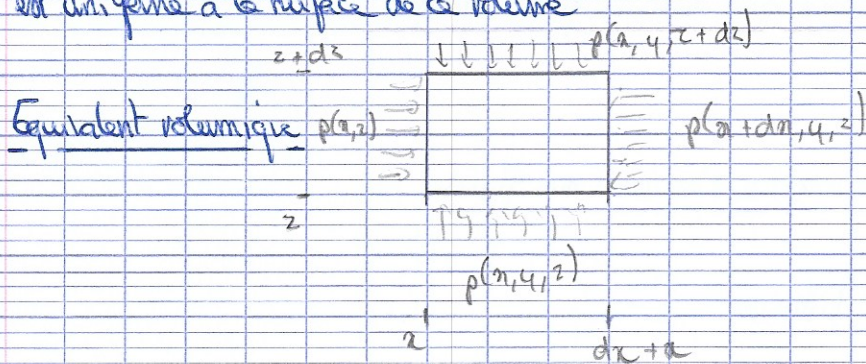 est uniforme à la surface de ce volume
z + dz
p(x, y, z + dz)
Equivalent volumique
p(x, z)
p(x + dx, y, z)
z
p(x, y, z)
x
dx + x